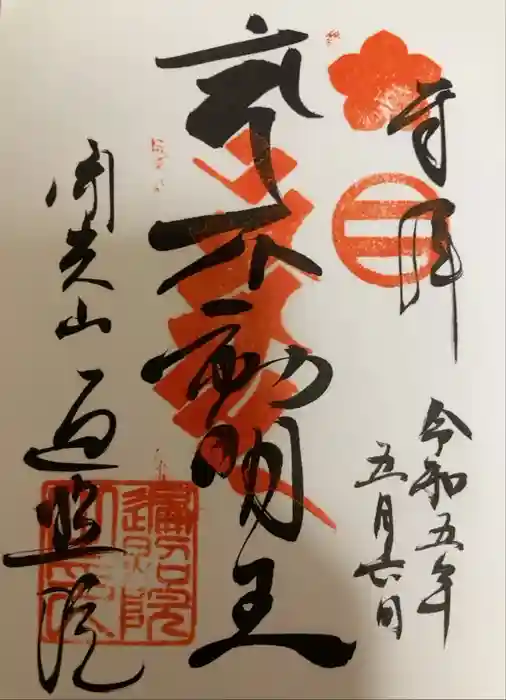 奉拝
令和五年
五月六日
不動明王
開光山
遍照院